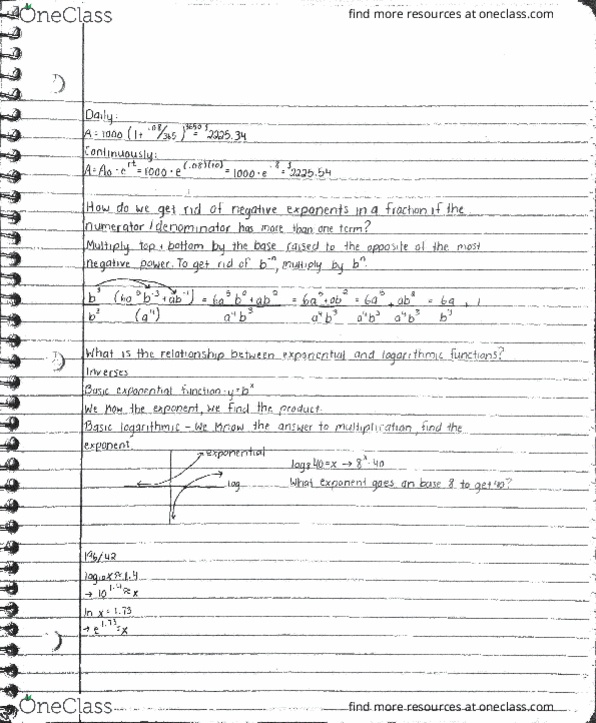 OneClass
find more resources at oneclass.com
Daily:
A = 1000 (1+ .08/365)^3650 = $2225.34
Continuously:
A = A₀ · e^rt = 1000 · e^(.08)(10) = 1000 · e^.8 = $2225.54
How do we get rid of negative exponents in a fraction if the
numerator/denominator has more than one term?
Multiply top + bottom by the base raised to the opposite of the most
negative power. To get rid of b⁻ⁿ, multiply by bⁿ.
What is the relationship between exponential and logarithmic functions?
Inverses
Basic exponential function - y=bˣ
We know the exponent, we find the product.
Basic logarithmic - we know the answer to multiplication, find the
exponent.
exponential
log
log₈40=x → 8ˣ=40
What exponent goes on base 8 to get 40?
196/42
log₁₀x≈1.4
→ 10^1.4≈x
ln x = 1.73
→ e^1.73=x
OneClass
find more resources at oneclass.com